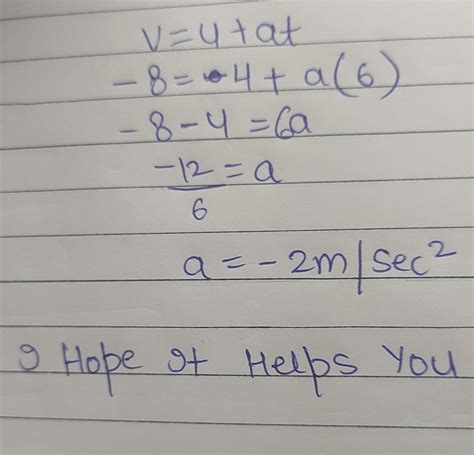 v=u+at
-8=4+a(6)
-8-4=6a
-12/6=a
a=-2m/sec²
I Hope It Helps You